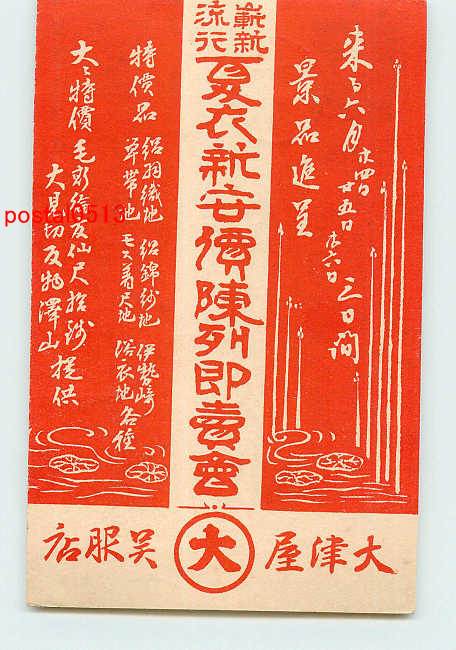 来る六月廿四日廿五日廿六日三日間
景品進呈
嶄新
流行
夏衣新安價陳列即賣會
特價品
絽羽織地 絽錦紗地 伊勢崎
單帯地 モス着尺地 浴衣地 各種
大々特價
大見切反物澤山 提供
大津屋
大
吴服店
postal0513